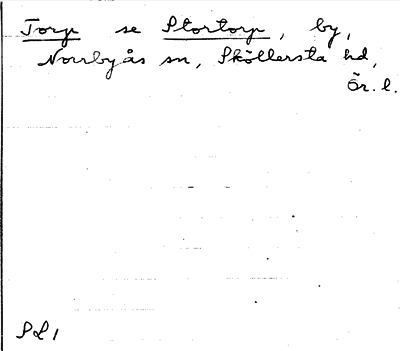 Torp se Stortorp, by,
Norrbyås sn, Sköllersta hd,
Ör. l.
SL 1